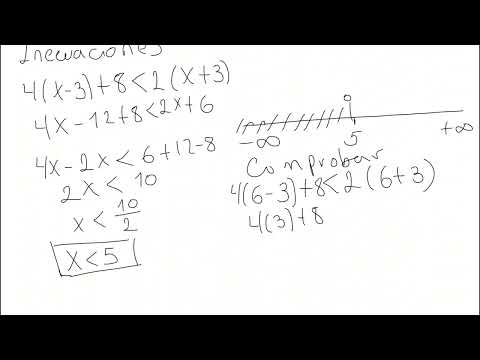 Inecuaciones
4(x-3)+8<2(x+3)
4x-12+8<2x+6
4x-2x<6+12-8
2x<10
x<10/2
x<5
-∞ 5 +∞
Comprobar
4(6-3)+8<2(6+3)
4(3)+8